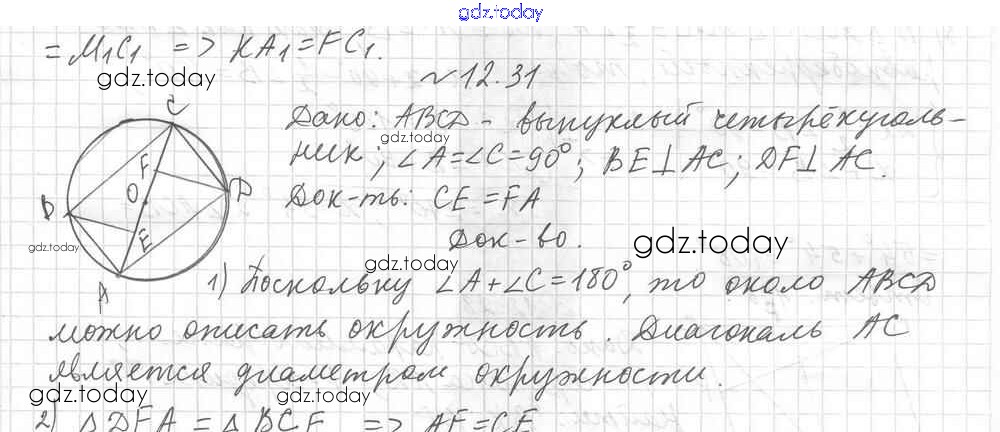 gdz.today
= M₁C₁ => KA₁ = FC₁.
gdz.today
~ 12.31
Дано: ABCD - выпуклый четырёхуголь-
gdz.today
ник; ∠A=∠C=90°; BE⊥AC; DF⊥AC.
Док-ть: CE = FA
Док-во.
gdz.today
gdz.today
gdz.today
C
F
D
B
O
E
A
1) Поскольку ∠A+∠C=180°, то около ABCD
можно описать окружность. Диагональ AC
является диаметром окружности.
gdz.today
gdz.today
gdz.today
2) △DFA = △BCE => AF=CE